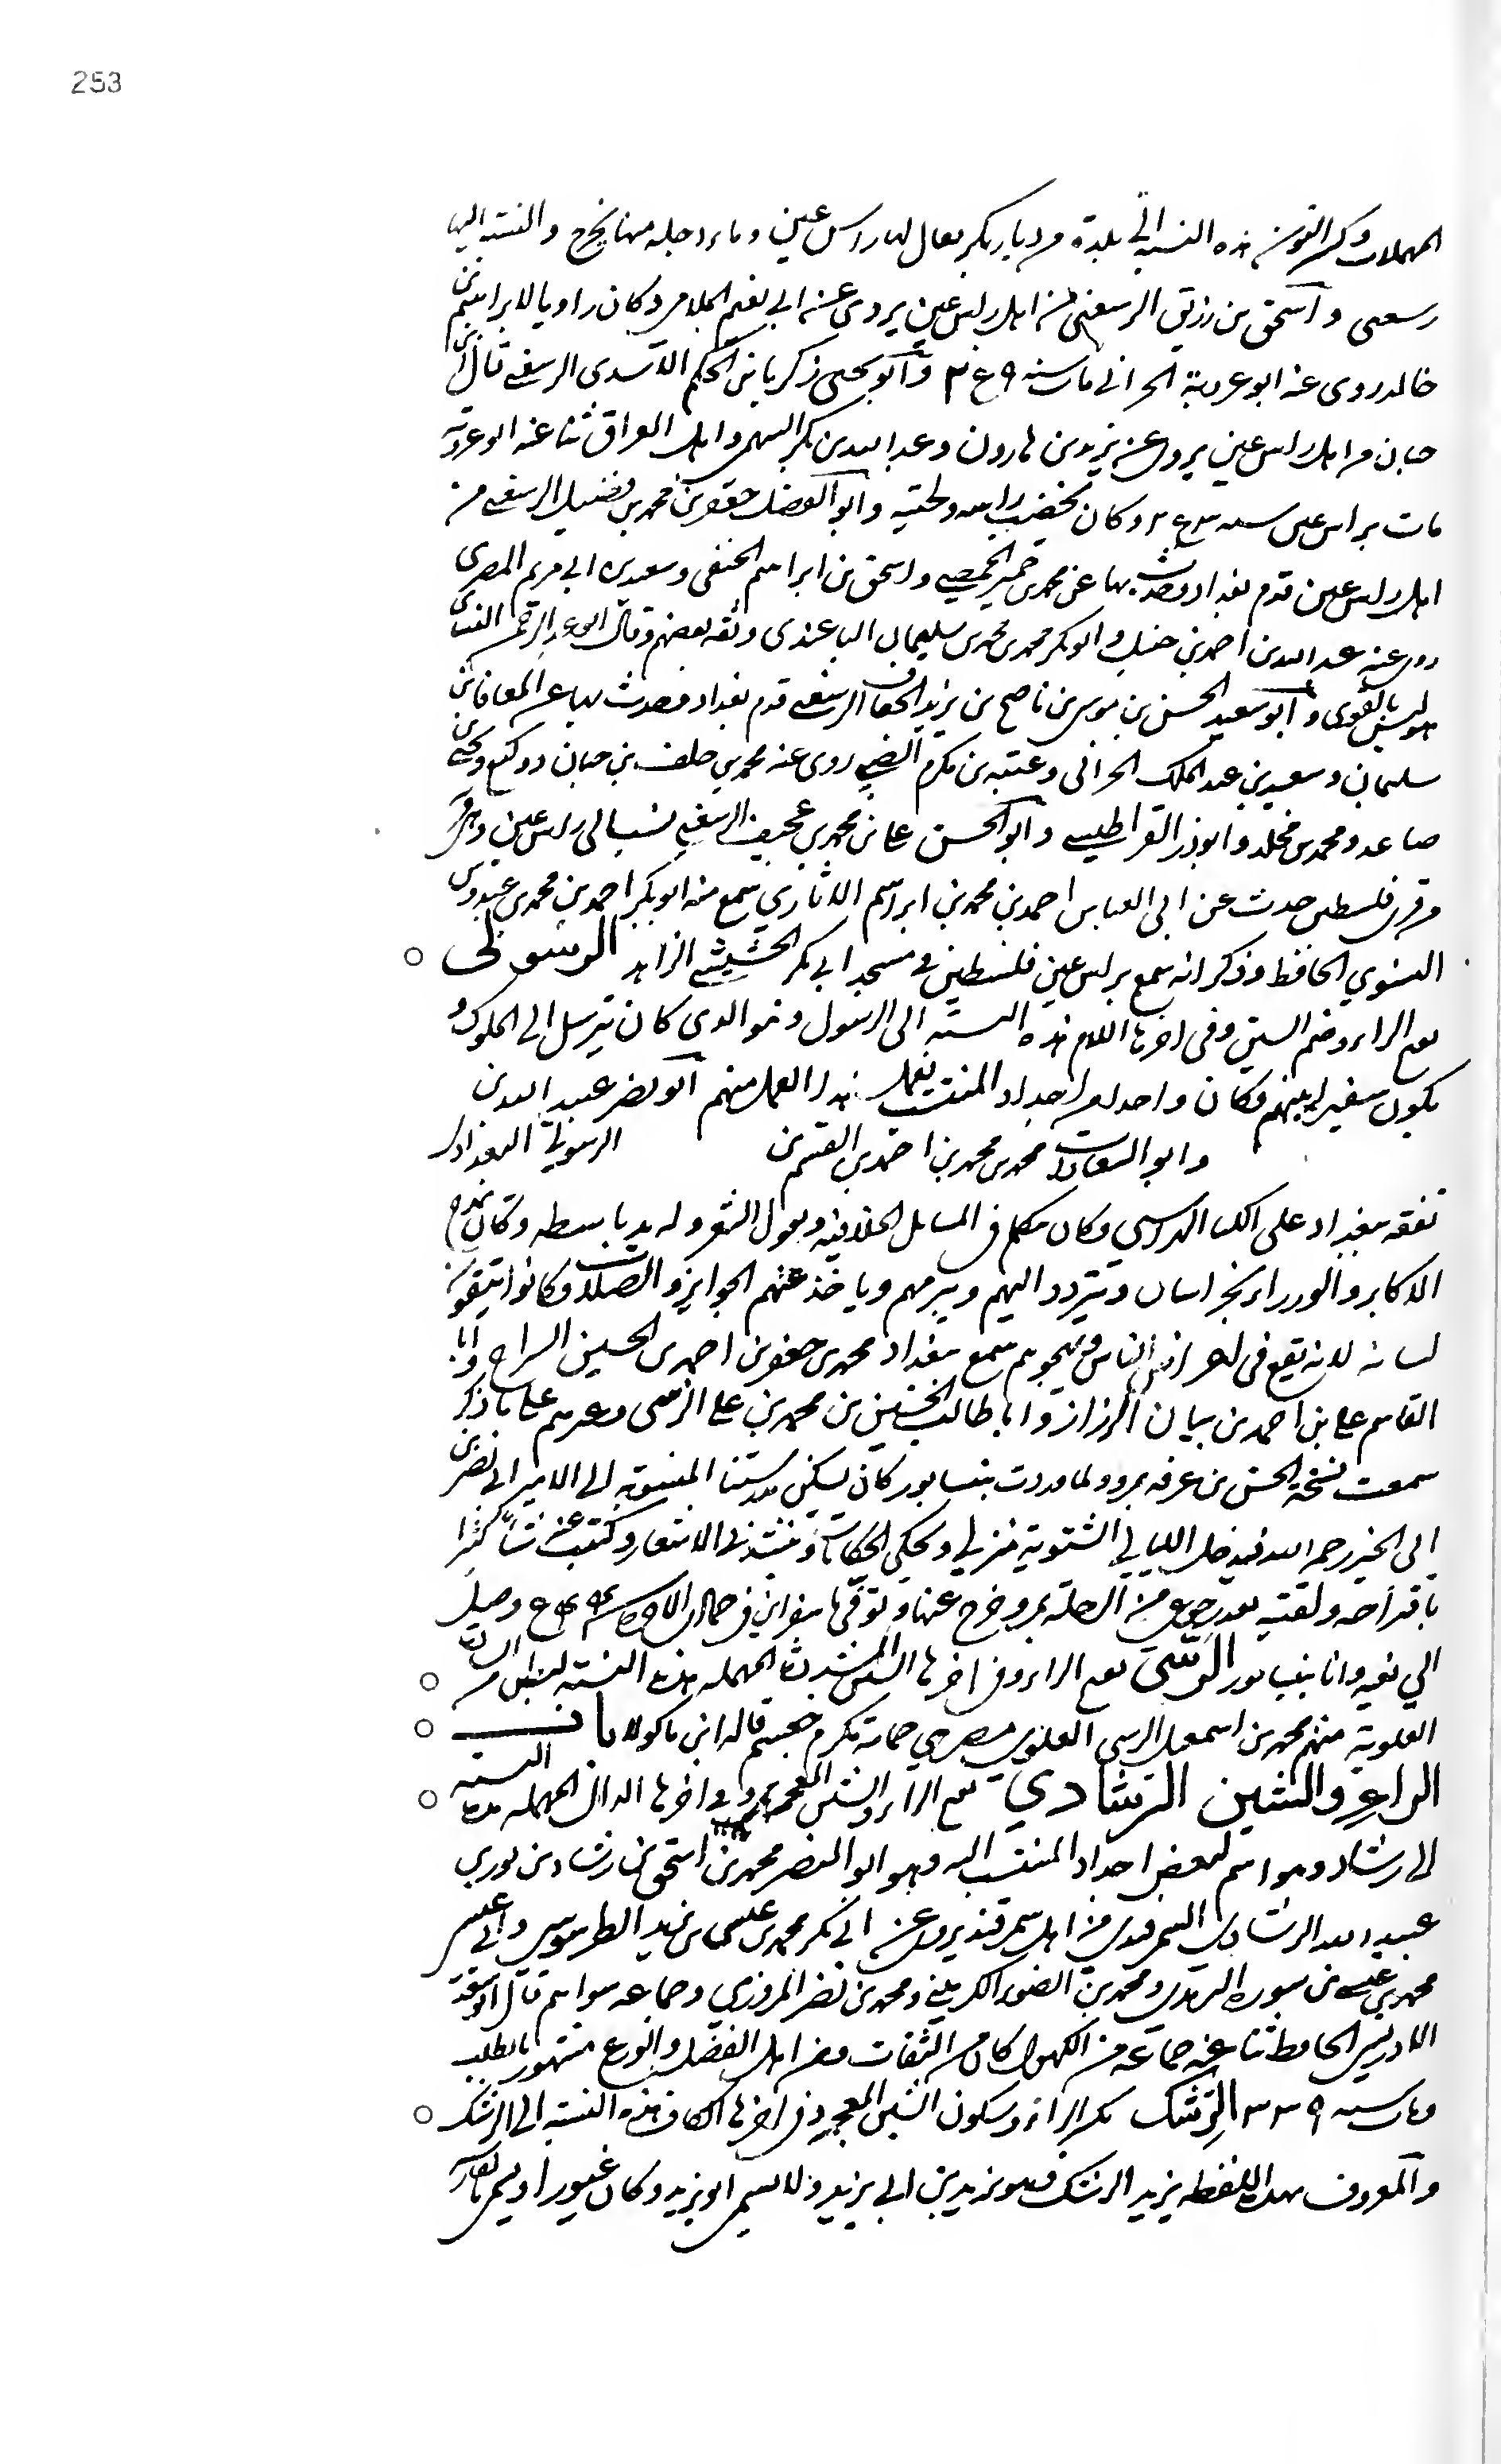 253
المهملات وكسر النون هذه النسبة الى بلدة من ديار بكر يقال لها راس عين وماء دجلة منها يخرج والنسبة اليها
رسعنى واسحق بن رزيق الرسعنى من اهل راس عين يروى عن ابي نعيم الملائى وكان راويا لابراهيم بن
خالد روى عنه ابو عروبة الحراني مات سنة وابو يحيى زكريا بن الحكم الاسدى الرسعنى قال ابن
حبان من اهل راس عين يروى عن يزيد بن هارون وعبد الله بن بكر السهمى واهل العراق ثنا عنه ابو عروبة
مات براس عين سنة وكان يخضب راسه ولحيته وابو الفضل جعفر بن محمد بن فضيل الرسعنى من
اهل راس عين قدم بغداد وحدث بها عن محمد بن حمير الحمصي واسحق بن ابراهيم الحنفى وسعيد بن ابي مريم المصرى
روى عنه عبد الله بن احمد بن حنبل وابو بكر محمد بن محمد بن سليمان الباغندى وثقه بعضهم وقال ابو عبد الرحمن النسائى
هو ليس بالقوى وابو سعيد الحسن بن موسى بن ناصح بن يزيد الخفاف الرسعنى قدم بغداد وحدث بها عن المعافا بن
سليمان وسعيد بن عبد الملك الحرانى وعقبة بن مكرم الضبي روى عنه محمد بن خلف بن حبان ووكيع ويحيى بن
صاعد ومحمد بن مخلد وابو ذر القراطيسى وابو الحسن على بن محمد بن الرسعنى نسب الى راس عين وهى قرية
من قرى فلسطين حدث عن ابى العباس احمد بن محمد بن ابراهيم سمع منه ابو بكر احمد بن محمد بن عبدوس
النسوي الحافظ وذكر انه سمع براس عين فلسطين في مسجد ابي بكر الزاهد الرسولى
بفتح الراء وضم السين وفى اخرها اللام هذه النسبة الى الرسول وهو الذى كان يترسل الى الملوك و
يكون سفيرا بينهم وكان واحدا من اجداد المنتسب يعمل هذا العمل منهم ابو نصر عبد الله بن
وابو السعادات محمد بن محمد بن احمد بن القسم بن الرسولي البغدادى
تفقه ببغداد على الكيا الهراسي وكان يتكلم فى المسائل الخلافية ويقول الشعر وله يد باسطه وكان يمدح
الاكابر والوزراء بخراسان ويتردد اليهم ويبرمهم وياخذ عنهم الجوايز والصلات وكانوا يتقون
لسانه لانه يقع فى اعراض الناس ويهجوهم سمع ببغداد محمد جعفر بن احمد بن الحسين السراج وابا
القاسم على بن احمد بن بيان الرزاز وابا طالب الحسين بن محمد بن على الزينبى وغيرهم على ما ذكر
سمعت نسخة الحسن بن عرفه بمرو ولما وردت نيسابور كان يسكن مدرستنا المنسوبة الى الامير ابي نصر بن
ابى الخير رحمه الله فيدخل الليالي الشتوية منزلي ويحكي الحكايات وينشدني الاشعار وكتبت عنه شيا كثيرا
باقتراحه ولقيته بعد رجوعى من الرحلة بمرو وخرج عنها وتوفى باسفراين فى جمادى الاولى سنة ووصل
الي نعيه وانا بنيسابور الرسي بفتح الراء وفى اخرها السين المشددة المهمله هذه النسبة لبطن من السادة
العلوية منهم محمد بن اسمعيل الرسى العلوى مصرى جماعة بكرم قاله ابن ماكولا باب
الراء والشين الرشادي بفتح الراء والشين المعجمة وفي اخرها الدال المهمله هذه النسبة
الى رشاد وهو اسم لبعض اجداد المنتسب اليه وهو ابو النصر محمد بن اسحق بن رشاد بن نوري
عبيد الله الرشادى السمرقندى من اهل سمرقند يروى عن ابي بكر محمد بن عيسى بن يزيد الطرسوسي وابي عيسى
محمد بن عيسى بن سورة الترمذى ومحمد بن الضوء الكرميني ومحمد بن نصر المروزي وجماعة سواهم قال ابو سعد
الادريسى الحافظ ثنا عنه جماعة من الكهول كان من الثقات ومن اهل الفضل والورع مشهور بالطلب
ومات سنة ٣٣٩ الرشك بكسر الراء وسكون الشين المعجمة وفى اخرها الكاف هذه النسبة الى الرشك
والمعروف بهذه اللفظه يزيد الرشك وهو يزيد بن ابي يزيد ولا يسمى ابو يزيد وكان غيورا ويسمى بالفارسية